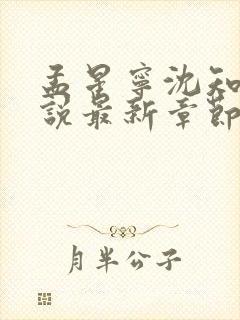 孟星寧沈知
說最新章節
月半公子